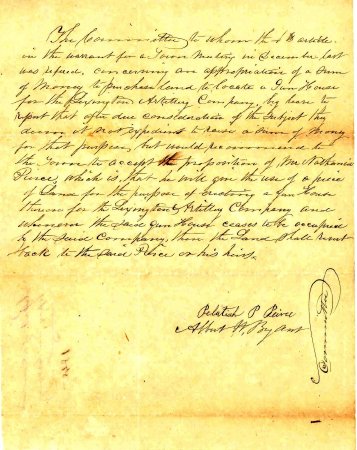 The Committee to whom the article
in the warrant for a Town Meeting in December last
was refered, concerning an appropriation of a Sum
of Money to purchase land to locate a Gun House
for the Lexington Artillery Company, beg leave to
report that after due consideration of the Subject they
deem it not expedient to raise a Sum of Money
for that purpose, but would recommend to
the Town to accept the proposition of Mr Nathaniel
Peirce, which is, that he will give the use of a piece
of Land for the purpose of erecting a Gun House
thereon for the Lexington Artillery Company and
whenever the said Gun House ceases to be occupied
by the Said Company, then the Land shall revert
back to the said Peirce or his heirs.
Pelatiah P Peirce
Albert W. Bryant
Committee